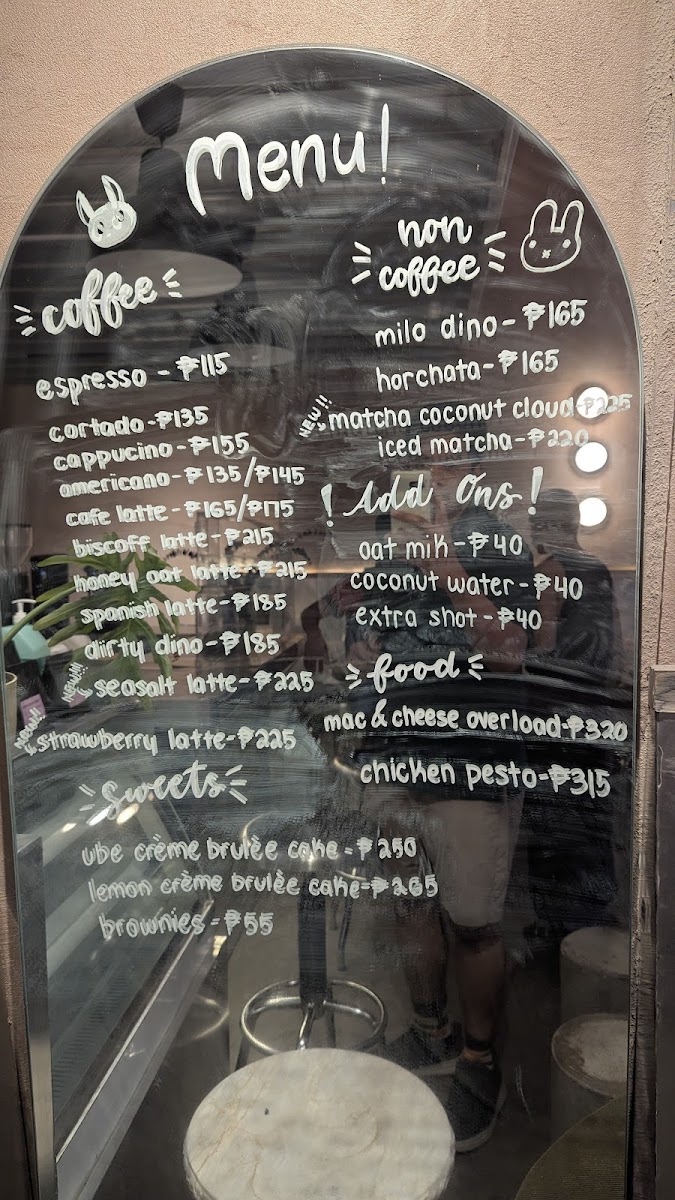 Menu!
coffee
espresso - ₱115
cortado-₱135
cappucino-₱155
americano-₱135/₱145
cafe latte-₱165/₱175
biscoff latte-₱215
honey oat latte-₱215
spanish latte-₱185
dirty dino-₱185
NEW!! seasalt latte-₱225
NEW!! strawberry latte-₱225
sweets
ube crème brulèe cake-₱250
lemon crème brulèe cake-₱265
brownies-₱55
non
coffee
milo dino-₱165
horchata-₱165
NEW!! matcha coconut cloud-₱225
iced matcha-₱220
! Add Ons!
oat mik-₱40
coconut water-₱40
extra shot-₱40
food
mac & cheese overload-₱320
chicken pesto-₱315